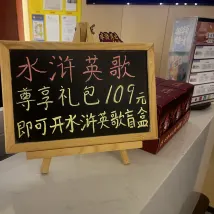 水浒英歌
尊享礼包109元
即可开水浒英歌盲盒